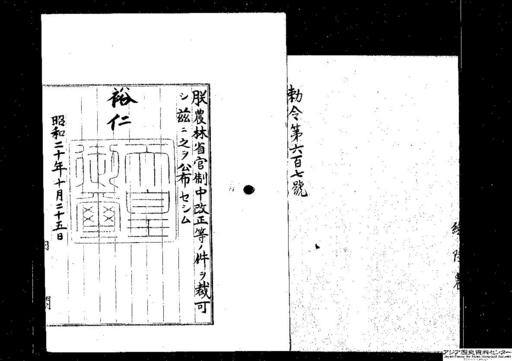 勅令第六百七號
朕農林省官制中改正等ノ件ヲ裁可
シ茲ニ之ヲ公布セシム
裕仁
天皇御璽
昭和二十年十月二十五日
アジア歴史資料センター